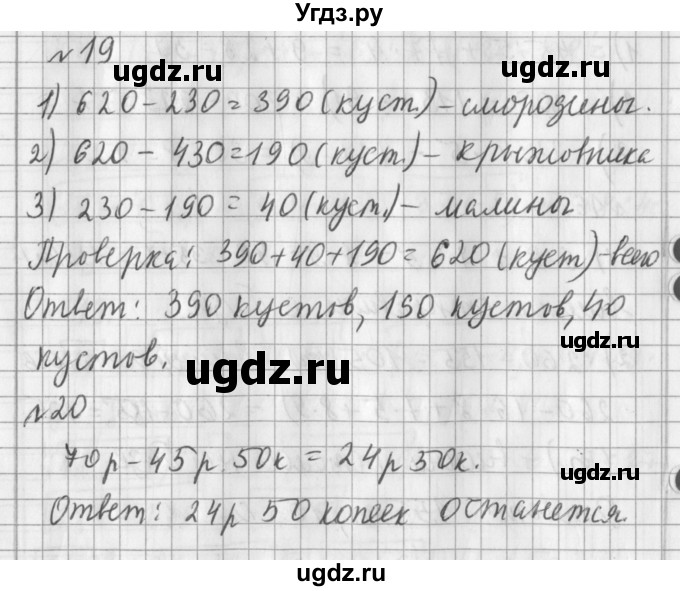 Угдз.ру
№19
ugdz.ru ugdz.ru
1) 620-230=390(куст.)-смородины.
2) 620-430=190(куст.)- крыжовника
ugdz.ru ugdz.ru
3) 230-190= 40(куст.)- малины
Проверка: 390+40+190=620(куст)-всего
Ответ: 390 кустов, 190 кустов, 40
кустов.
ugdz.ru
№20
70р-45р 50к=24р50к.
ugdz.ru
Ответ: 24р 50копеек останется.
ugdz.ru
ugdz.ru